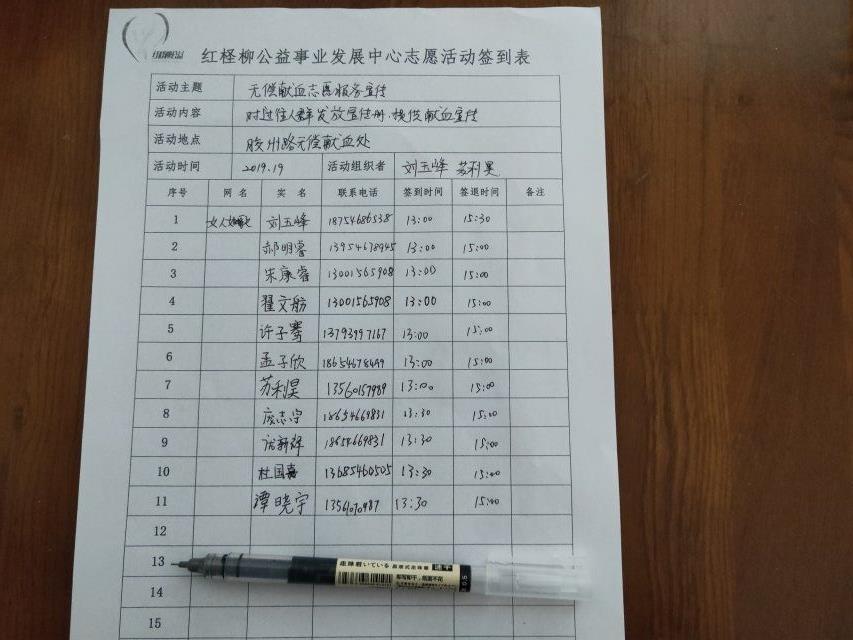 红柽柳公益事业发展中心志愿活动签到表
活动主题 无偿献血志愿服务宣传
活动内容 对过往人群发放宣传册、提供献血宣传
活动地点 胶州路无偿献血处
活动时间 2019.19 活动组织者 刘玉峰 苏利昊
序号 网 名 实 名 联系电话 签到时间 签退时间 备注
1 女人如歌 刘玉峰 18754686538 13:00 15:30
2 郝明睿 13954678945 13:00 15:00
3 宋康睿 13001565908 13:00 15:00
4 翟文舫 13001565908 13:00 15:00
5 许子骞 13793997167 13:00 15:00
6 孟子欣 18654678499 13:00 15:00
7 苏利昊 13560157989 13:00 15:00
8 庞志宇 18654669831 13:30 15:00
9 18654669831 13:30 15:00
10 杜国嘉 13685460505 13:30 15:00
11 谭晓宇 13:30 15:00
12
13
14
15
走珠着いている 直液式走珠笔 速干
即写即干，纸面不花
0.5